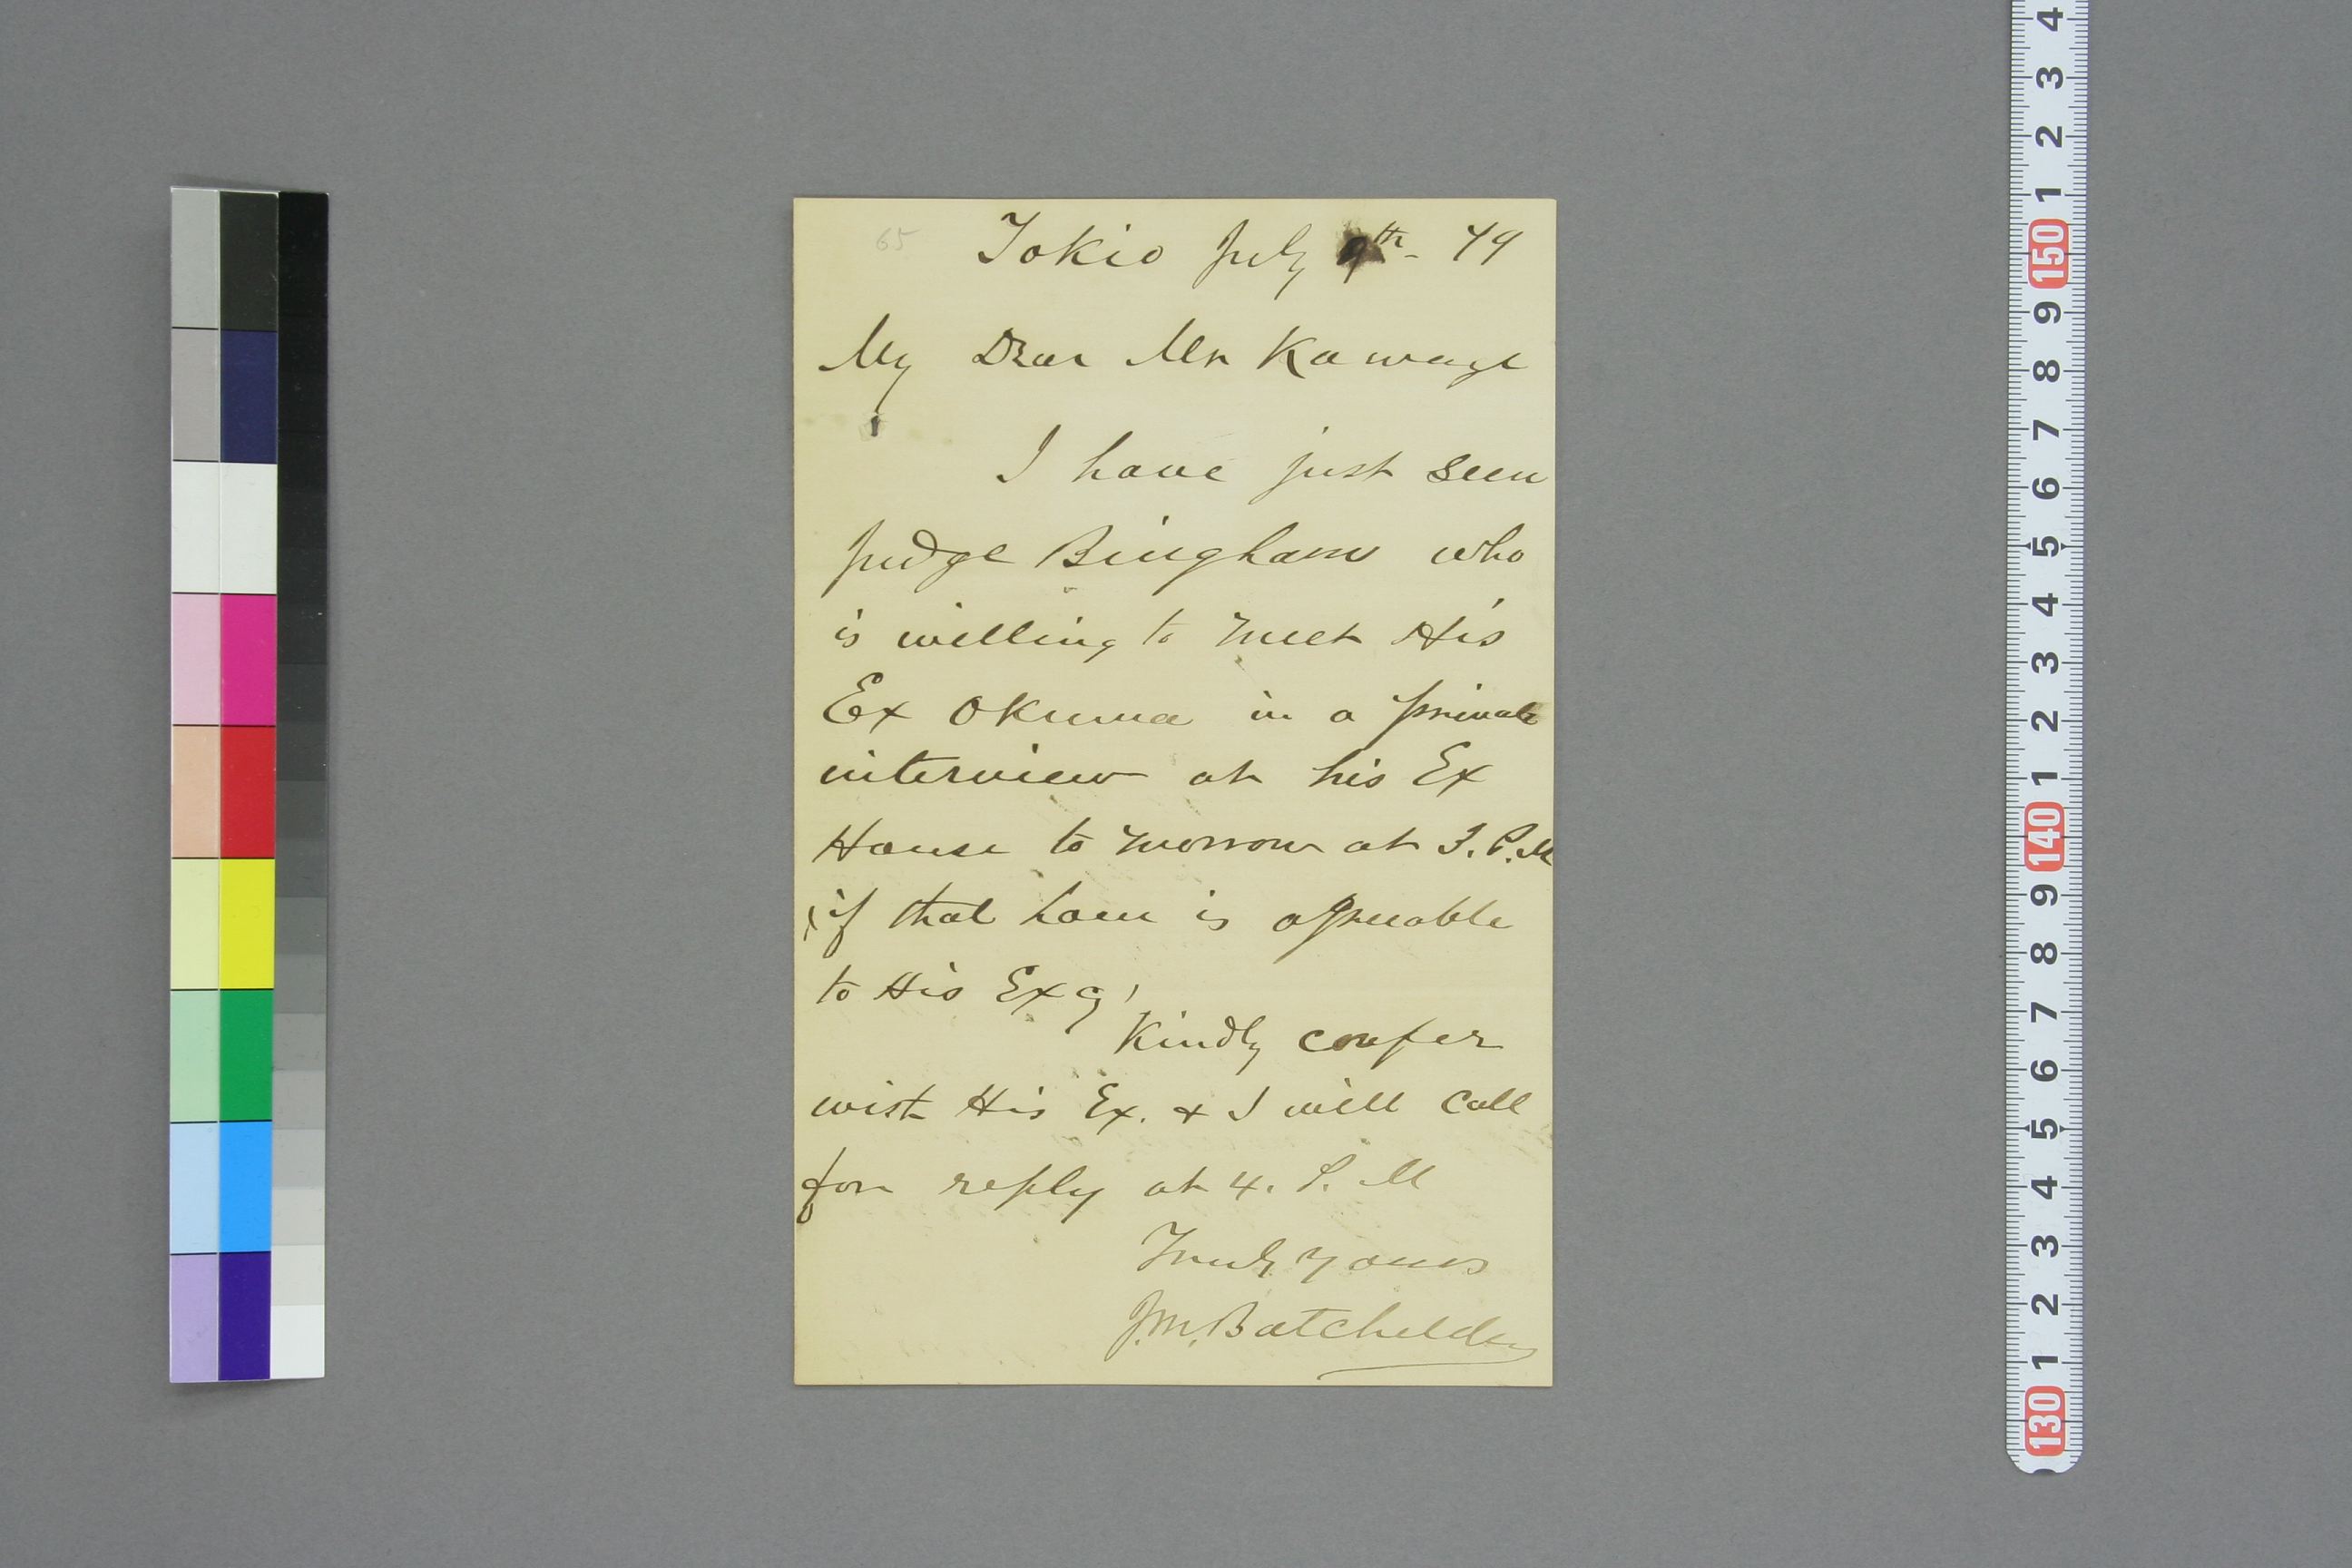 65
Tokio July 9th - 79
My Dear Mr Kawage
I have just seen
Judge Bingham who
is willing to meet His
Ex Okuma in a private
interview at his Ex
House to morrow at 3. P.M
if that hour is agreeable
to His Excy
Kindly confer
with His Ex. & I will call
for reply at 4. P. M
Truly yours
J.M. Batchelder
4
3
2
1
150
9
8
7
6
5
4
3
2
1
140
9
8
7
6
5
4
3
2
1
130